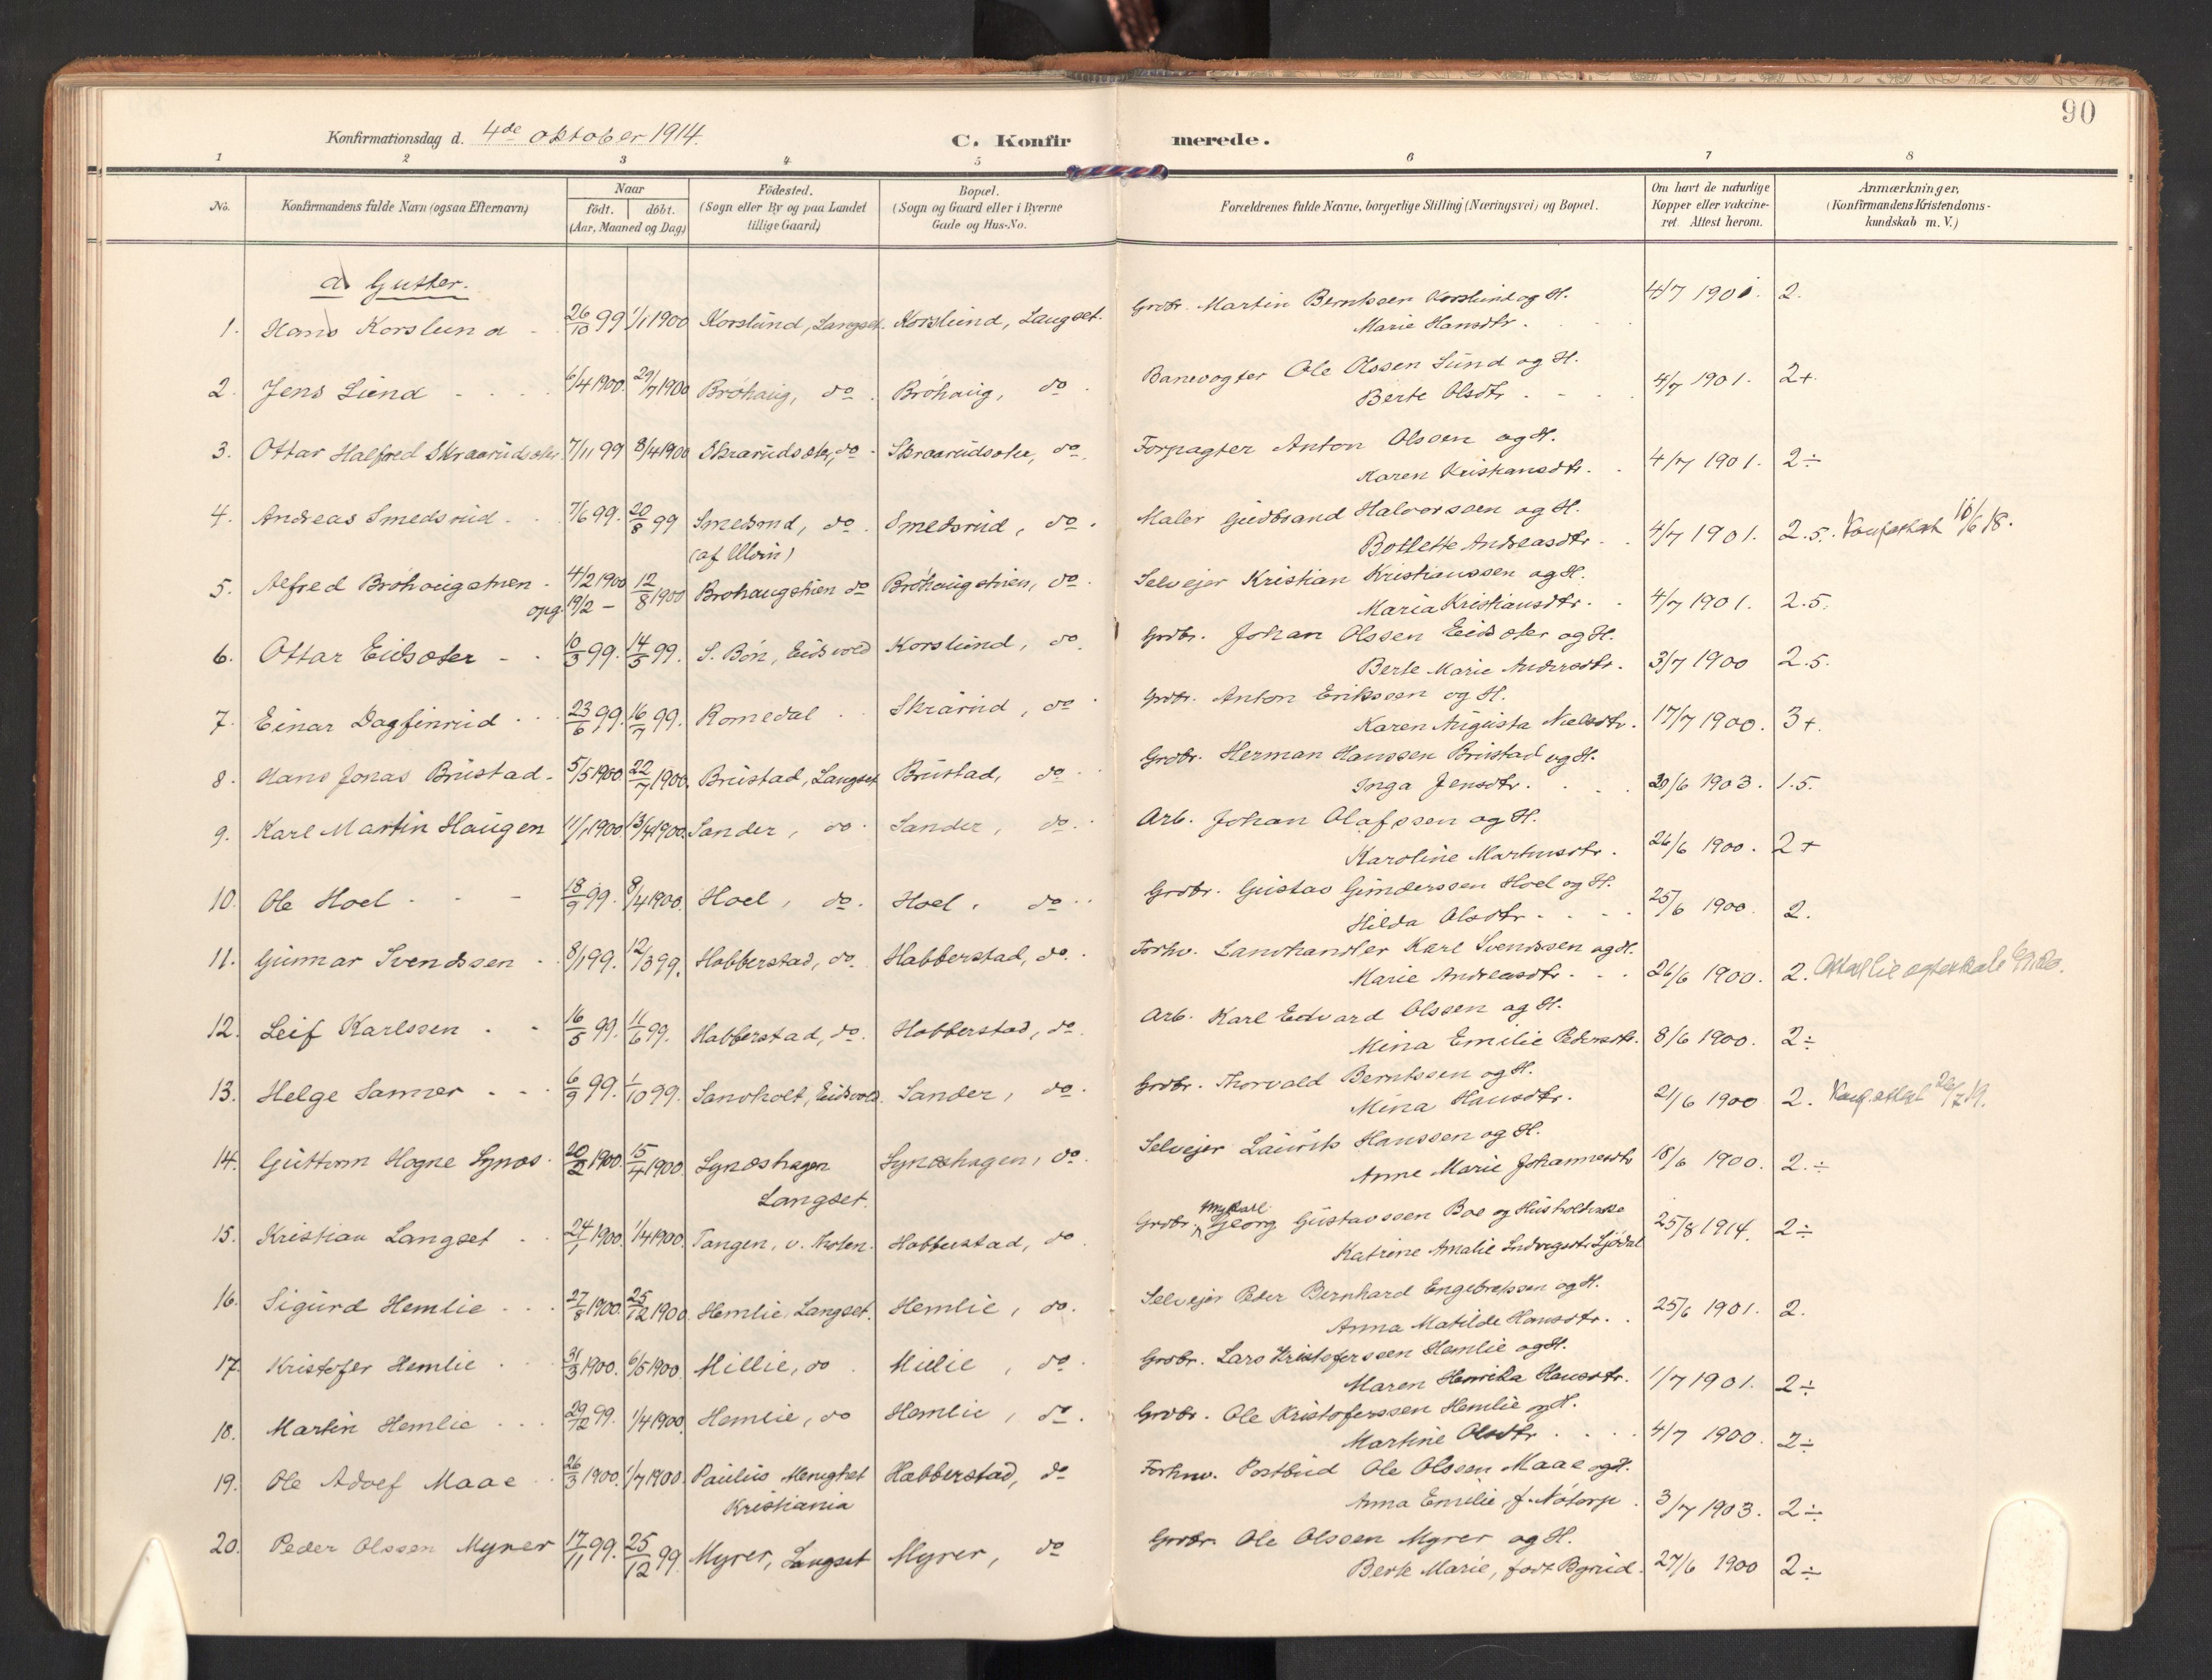 90
Konfirmationsdag d. 4de oktober 1914. C. Konfirmerede.
1 2 3 4 5 6 7 8
No. Konfirmandens fulde Navn (ogsaa Efternavn) Naar födt. döbt. (Aar, Maaned og Dag) Födested. (Sogn eller By og paa Landet tillige Gaard) Bopæl. (Sogn og Gaard eller i Byerne Gade og Hus-No. Forældrenes fulde Navne, borgerlige Stilling (Næringsvei) og Bopæl. Om havt de naturlige Kopper eller vakcineret. Attest herom. Anmærkninger, (Konfirmandens Kristendomskundskab m. V.)
a. Gutter.
1. Hans Korslund 26/10 99 1/1 1900 Korslund, Langset. Korslund, Langset. Grdbr. Martin Berntssen Korslund og H. 4/7 1901. 2.
Marie Hansdtr.
2. Jens Lund 6/4 1900. 29/7 1900 Bröhaug, do. Bröhaug, do. Banevogter Ole Olssen Lund og H. 4/7 1901. 2+.
Berte Olsdtr.
3. Ottar Halfred Skraarudseter 7/11 99 8/4 1900 Skrarudseter, do. Skraarudseter, do. Forpagter Anton Olssen og H. 4/7 1901. 2÷
Karen Kristiansdtr.
4. Andreas Smedsrud 7/6 99. 20/8 99 Smedsrud, do. Smedsrud, do. Maler Gudbrand Halvorssen og H. 4/7 1901. 2.5. 10/6 18.
(af Ulvin) Bollette Andreasdtr.
5. Alfred Bröhaugstuen 4/2 1900 12/8 1900 Bröhaugstuen do Bröhaugstuen, do. Selveier Kristian Kristianssen og H. 4/7 1901. 2.5.
opg. 19/2 – Maria Kristiansdtr.
6. Ottar Eidseter 10/3 99. 14/5 99. S. Bön, Eidsvold Korslund, do. Grdbr. Johan Olssen Eidseter og H. 3/7 1900 2.5.
Berte Marie Andersdtr.
7. Einar Dagfinrud 23/6 99. 16/7 99. Romedal Skrárud, do. Grdbr. Anton Erikssen og H. 17/7 1900. 3+.
Karen Augusta Nielsdtr.
8. Hans Jonas Brustad 5/5 1900. 22/7 1900. Brustad, Langset Brustad, do. Grdbr. Herman Hanssen Brustad og H. 20/6 1903. 1.5.
Inga Jensdtr.
9. Karl Martin Haugen 11/1 1900 13/4 1900. Sander, do. Sander, do. Arb. Johan Olafssen og H. 26/6 1900. 2+
Karoline Martinsdtr.
10. Ole Hoel 18/9 99. 8/4 1900. Hoel, do. Hoel, do. Grdbr. Gustav Gunderssen Hoel og H. 25/6 1900. 2.
Hilda Olsdtr.
11. Gunnar Svendssen 8/1 99. 12/3 99. Habberstad, do. Habberstad, do. Forhv. Landhandler Karl Svendssen og H. 26/6 1900. 2.
Marie Andreasdtr.
12. Leif Karlssen 16/5 99. 11/6 99. Habberstad, do. Habberstad, do. Arb. Karl Edvard Olssen og H. 8/6 1900. 2÷
Mina Emilie Pedersdtr.
13. Helge Sanner 6/9 99. 1/10 99. Sandholt, Eidsvold. Sander, do. Grdbr. Thorvald Berntssen og H. 21/6 1900 2. Konf. attest 26/7 19.
Mina Hansdtr.
14. Guttorm Hogne Synes 20/2 1900. 15/4 1900 Syneshagen Syneshagen, do. Selvejer Laurits Hanssen og H. 18/6 1900. 2.÷
Langset. Anne Marie Johannesdtr
15. Kristian Langset 24/1 1900. 1/4 1900. Tangen, v. Habberstad, do Grdbr. Georg Gustavssen Boe og Husholderske 25/8 1914. 2÷
Katrine Amalie
16. Sigurd Hemlie 27/8 1900. 25/12 1900. Hemlie, Langset. Hemlie, do. Selvejer Peder Bernhard Engebretssen og H. 25/6 1901. 2.
Anna Matilde Hansdtr.
17. Kristofer Hemlie 31/3 1900. 6/5 1900. Millie, do. Millie, do. Grdbr. Lars Kristoferssen Hemlie og H. 1/7 1901. 2÷
Maren Henrika Hansdtr.
18. Martin Hemlie 29/12 99. 1/4 1900. Hemlie, do Hemlie, do. Grdbr. Ole Kristoferssen Hemlie og H. 4/7 1900. 2÷
Martine Olsdtr.
19. Ole Adolf Maae 26/3 1900. 1/7 1900. Paulus Menighet Habberstad, do Forhnv. Postbud Ole Olssen Maae og H. 3/7 1903. 2÷
Kristiania Anna Emilie, f. Nötorp.
20. Peder Olssen Myrer 17/11 99. 25/12 99. Myrer, Langset Myrer, do Grdbr. Ole Olssen Myrer og H. 27/6 1900 2÷
Berte Marie, født Byrud.